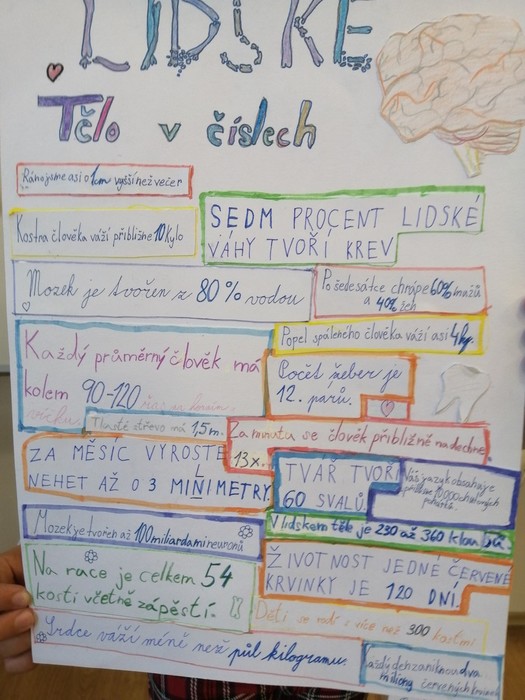 LIDSKÉ
Tělo v číslech
Ráno jsme asi o 1cm vyšší než večer
Kostra člověka váží přibližně 10 kylo
SEDM PROCENT LIDSKÉ
VÁHY TVOŘÍ KREV
Mozek je tvořen z 80% vodou
Po šedesátce chrápe 60% mužů
a 40% žen
Popel spáleného člověka váží asi 4kg.
Každý průměrný člověk má
kolem 90-120
Počet žeber je
12. párů.
Tlusté střevo má 1,5m.
Za minutu se člověk přibližně nadechne
13x.
ZA MĚSÍC VYROSTE
NEHET AŽ O 3 MILIMETRY
TVÁŘ TVOŘÍ
60 SVALŮ
Náš jazyk obsahuje
10 000 chuťových
pohárků.
Mozek je tvořen až 100 miliardami neuronů
V lidském těle je 230 až 360 kloubů.
Na ruce je celkem 54
kostí včetně zápěstí.
ŽIVOTNOST JEDNÉ ČERVENÉ
KRVINKY JE 120 DNÍ.
Děti se rodí s více než 300 kostmi.
Srdce váží méně než půl kilogramu.
Každý den zaniknou dva
miliony červených krvinek